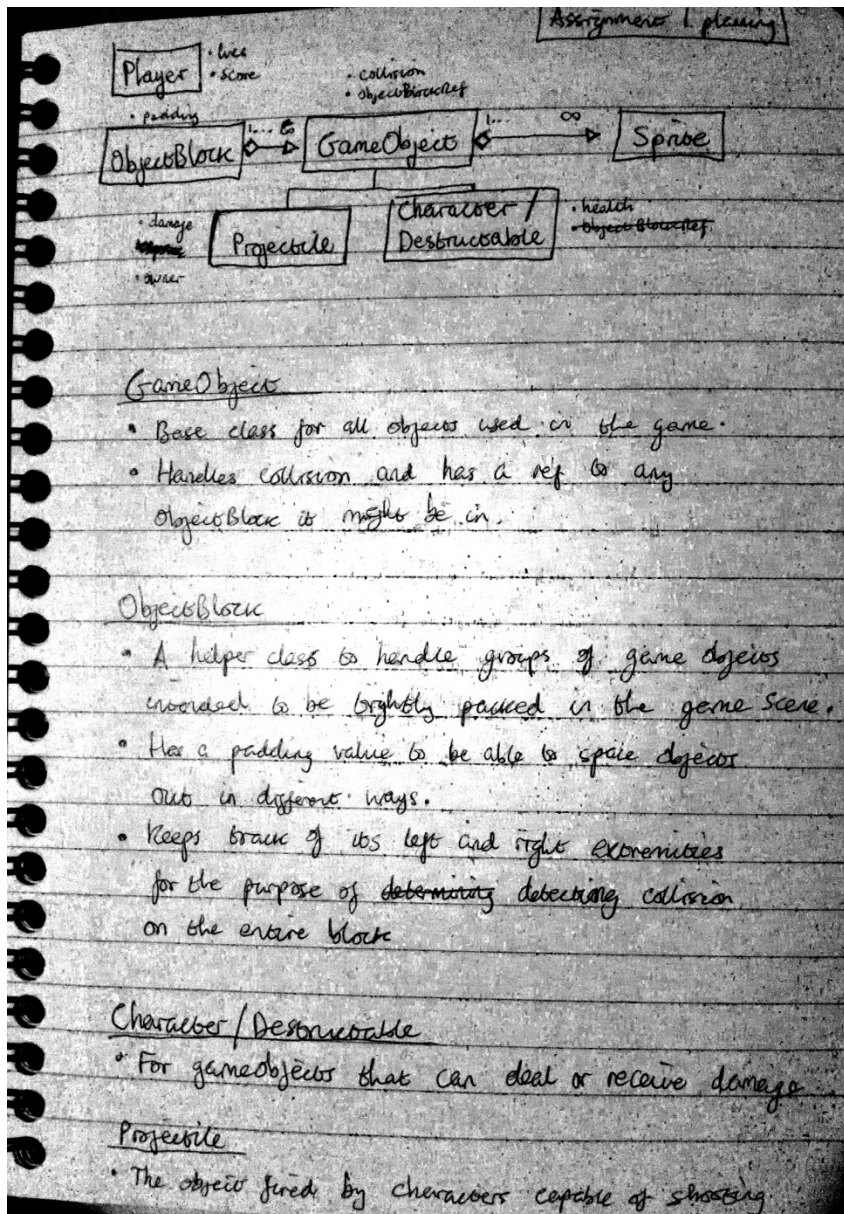 Assignment 1 planning
Player
• lives
• score
• collision
• ObjectBlockRef
• padding
1... ∞
1... ∞
ObjectBlock
GameObject
Sprite
• damage
• owner
Projectile
Character /
Destructable
• health
• ObjectBlockRef
GameObject
• Base class for all objects used in the game.
• Handles collision and has a ref to any
ObjectBlock it might be in.
ObjectBlock
• A helper class to handle groups of game objects
intended to be tightly packed in the game scene.
• Has a padding value to be able to space objects
out in different ways.
• Keeps track of its left and right extremities
for the purpose of determining detecting collision
on the entire block
Character/Destructable
• For gameobjects that can deal or receive damage
Projectile
• The object fired by characters capable of shooting